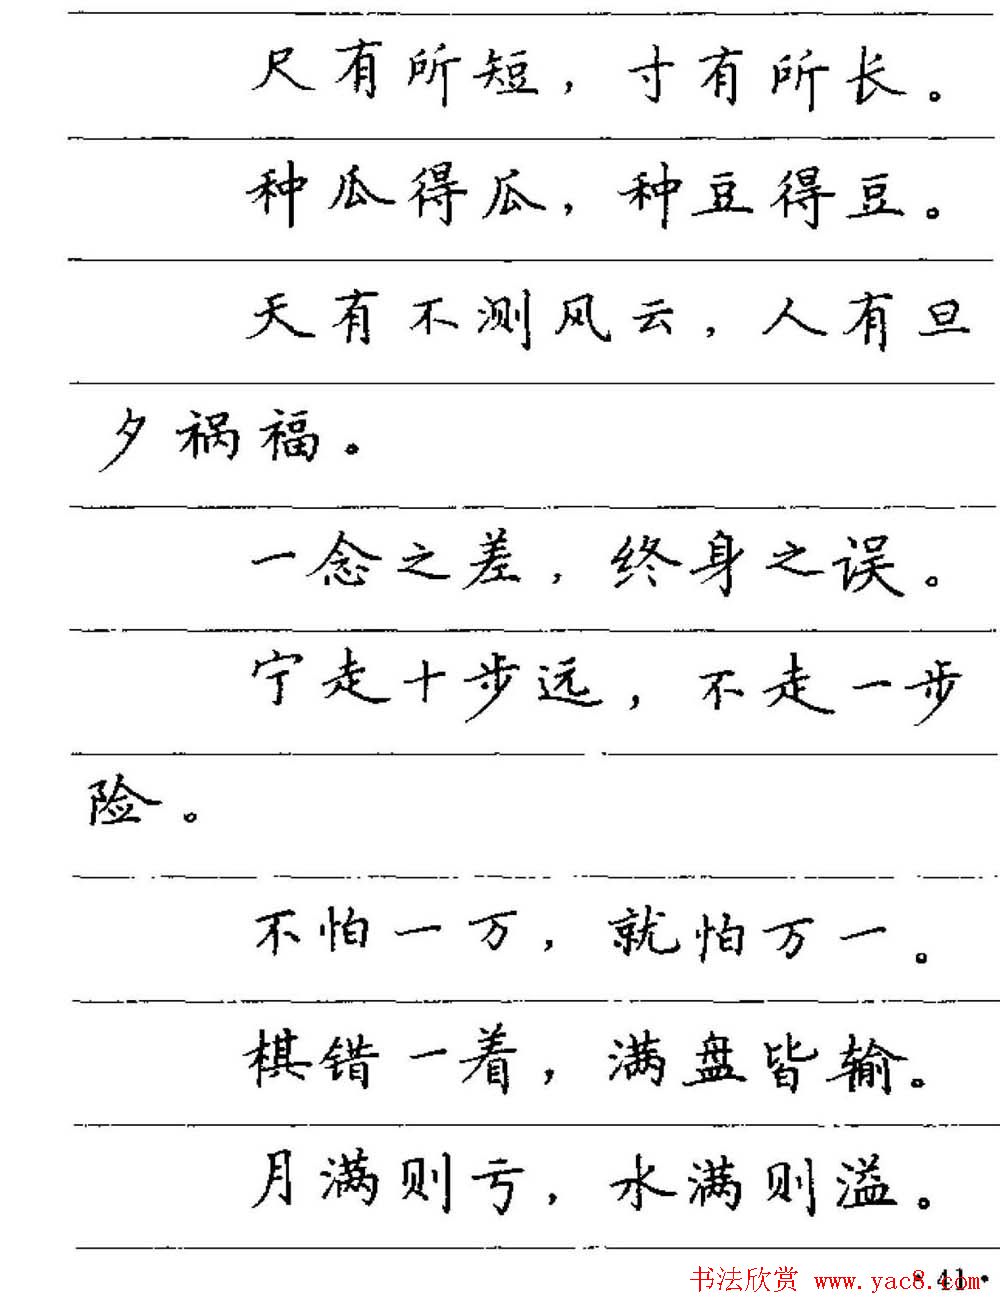 尺有所短，寸有所长。
种瓜得瓜，种豆得豆。
天有不测风云，人有旦
夕祸福。
一念之差，终身之误。
宁走十步远，不走一步
险。
不怕一万，就怕万一。
棋错一着，满盘皆输。
月满则亏，水满则溢。
·41·
书法欣赏 www.yac8.com